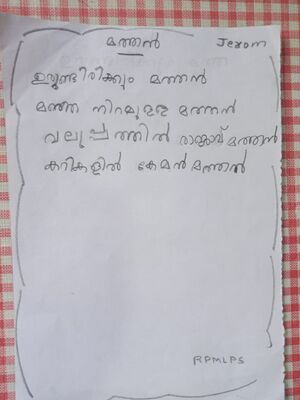 മത്തൻ Jerom
ഉരുണ്ടിരിക്കും മത്തൻ
മഞ്ഞ നിറമുള്ള മത്തൻ
വലുപ്പത്തിൽ രാജാവ് മത്തൻ
കറികളിൽ കേമൻ മത്തൻ
RPMLPS